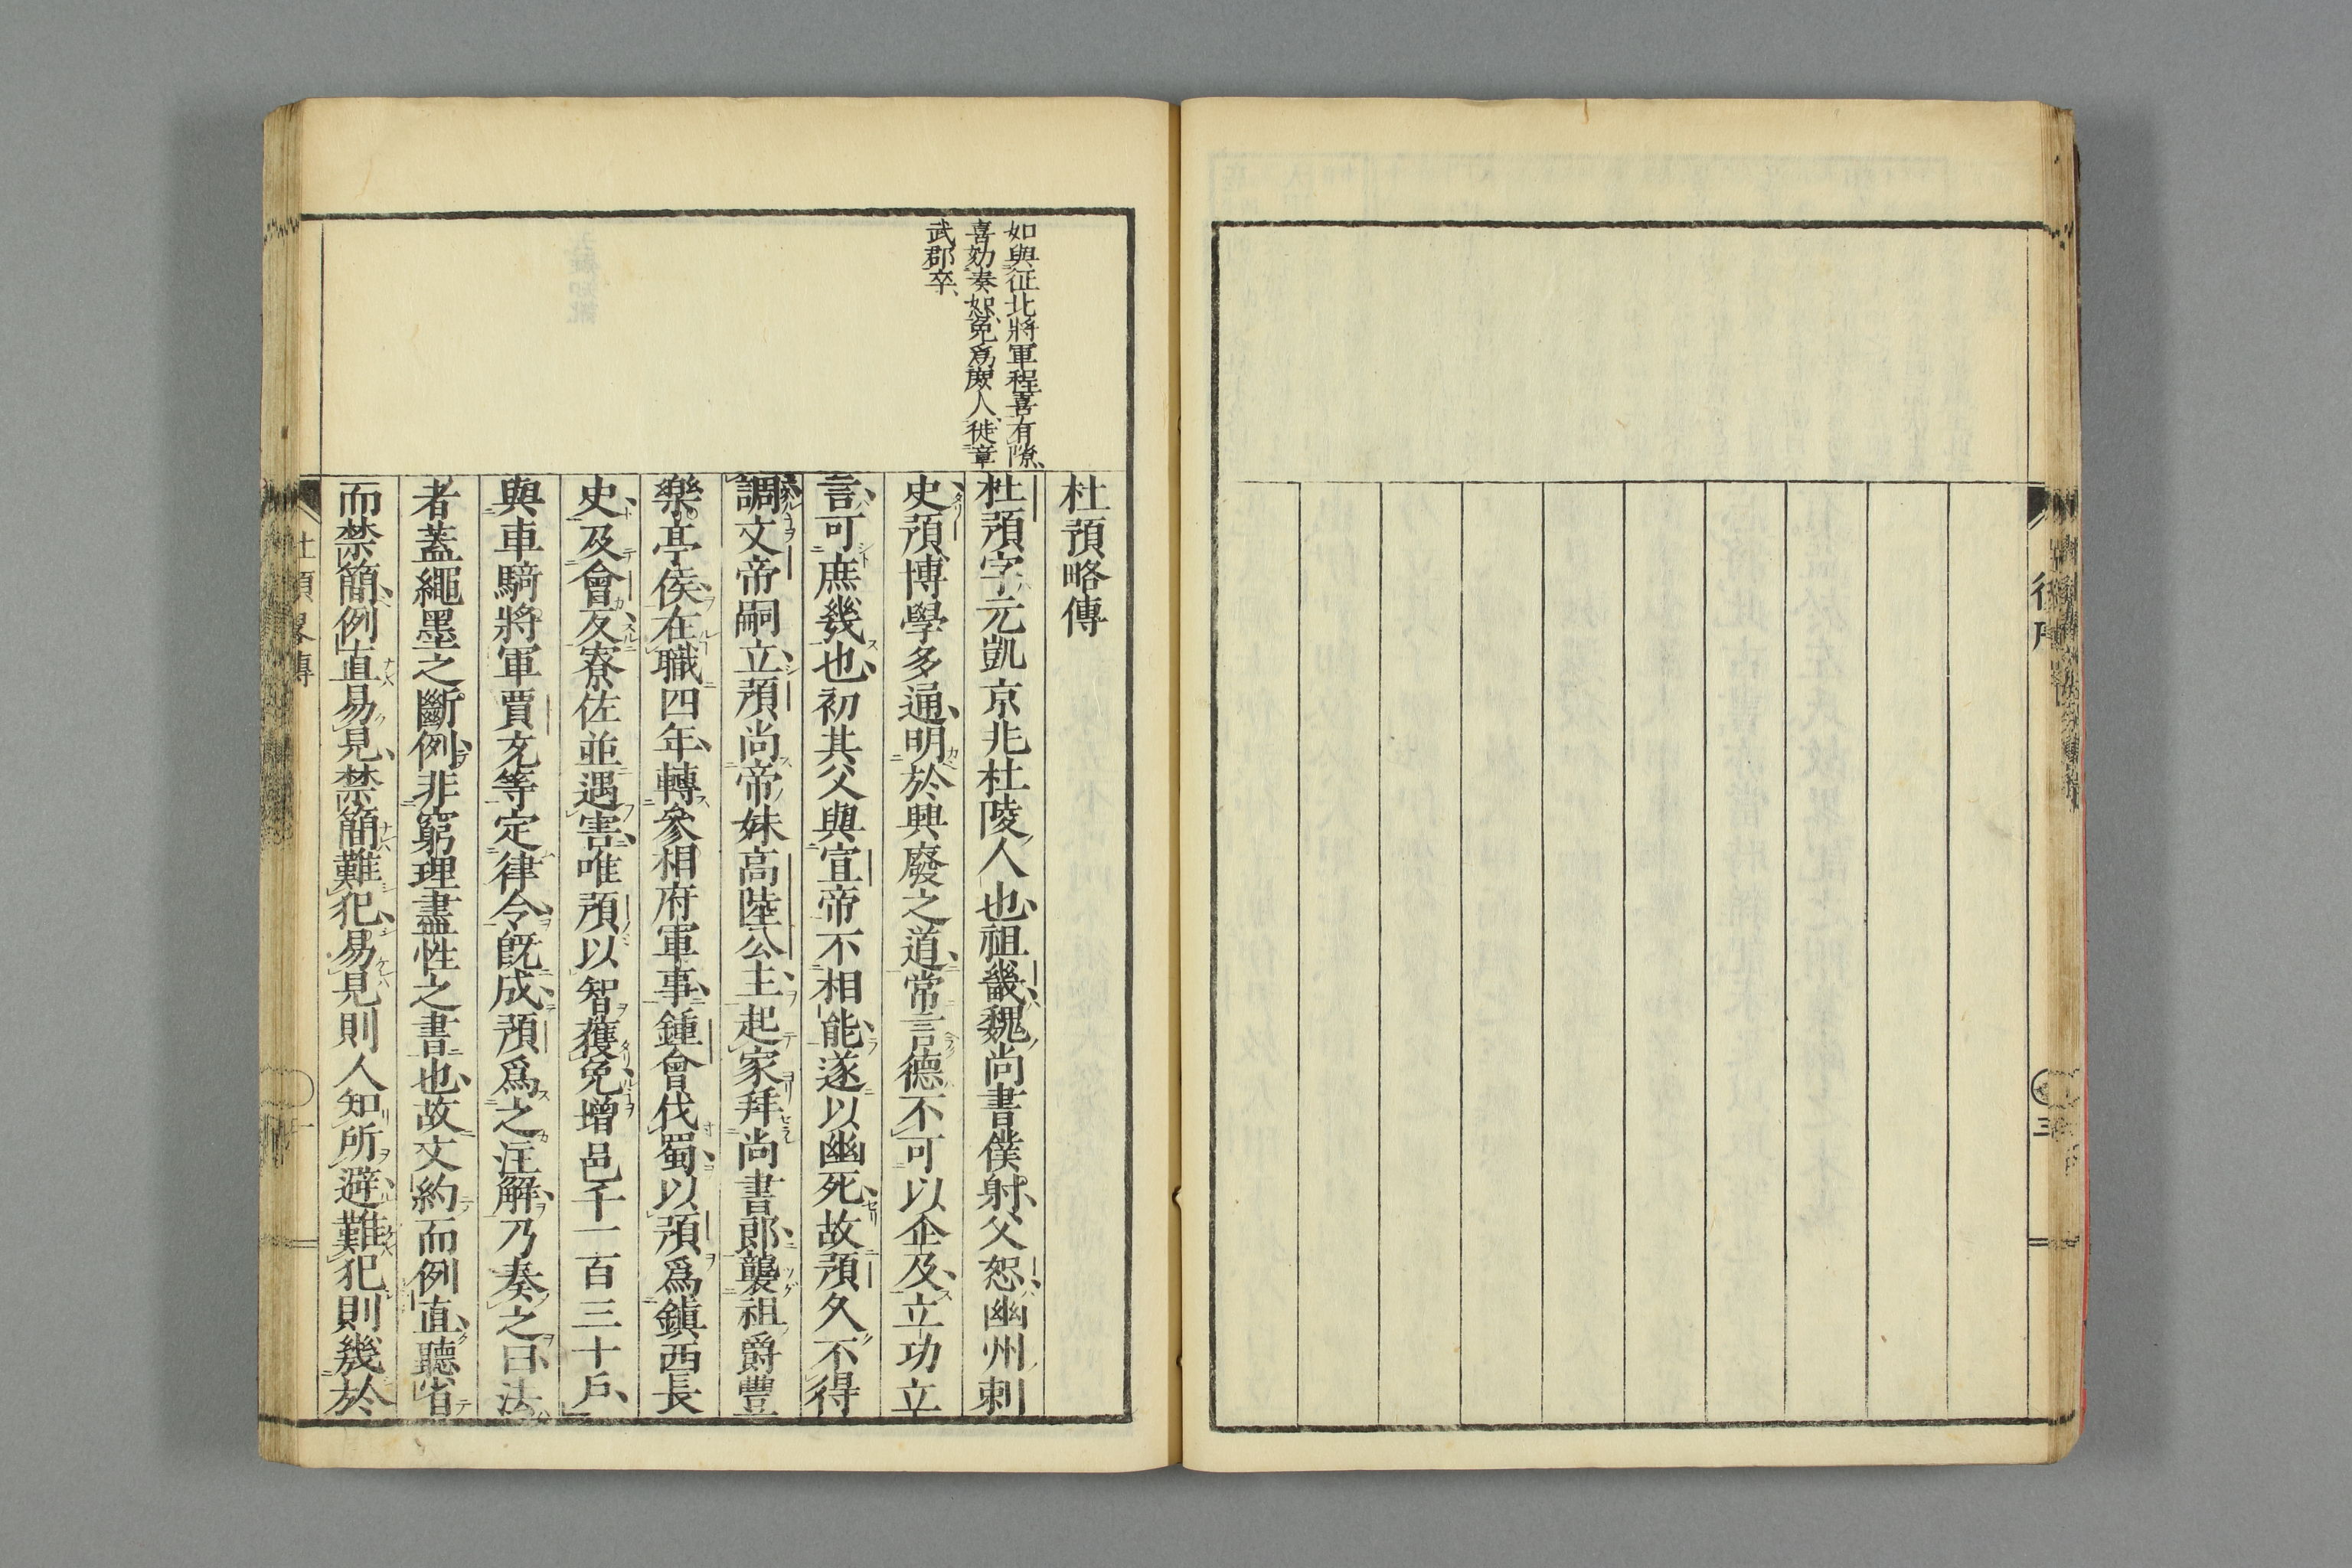 三
如與征北將軍程喜有隙
喜効奏恕免爲庶人徙章
武郡卒
杜預略傳
杜預字元凱京兆杜陵人也祖畿魏尚書僕射父恕幽州刺
史預博學多通明於興廢之道常言德不可以企及立功立
言可庶幾也初其父與宣帝不相能遂以幽死故預久不得
調文帝嗣立預尚帝妹高陸公主起家拜尚書郎襲祖爵豐
樂亭侯在職四年轉參相府軍事鍾會伐蜀以預爲鎭西長
史及會反寮佐並遇害唯預以智獲免增邑千一百三十戶
與車騎將軍賈充等定律令旣成預爲之注解乃奏之曰法
者蓋繩墨之斷例非窮理盡性之書也故文約而例直聽省
而禁簡例直易見禁簡難犯易見則人知所避難犯則幾於
杜預畧傳